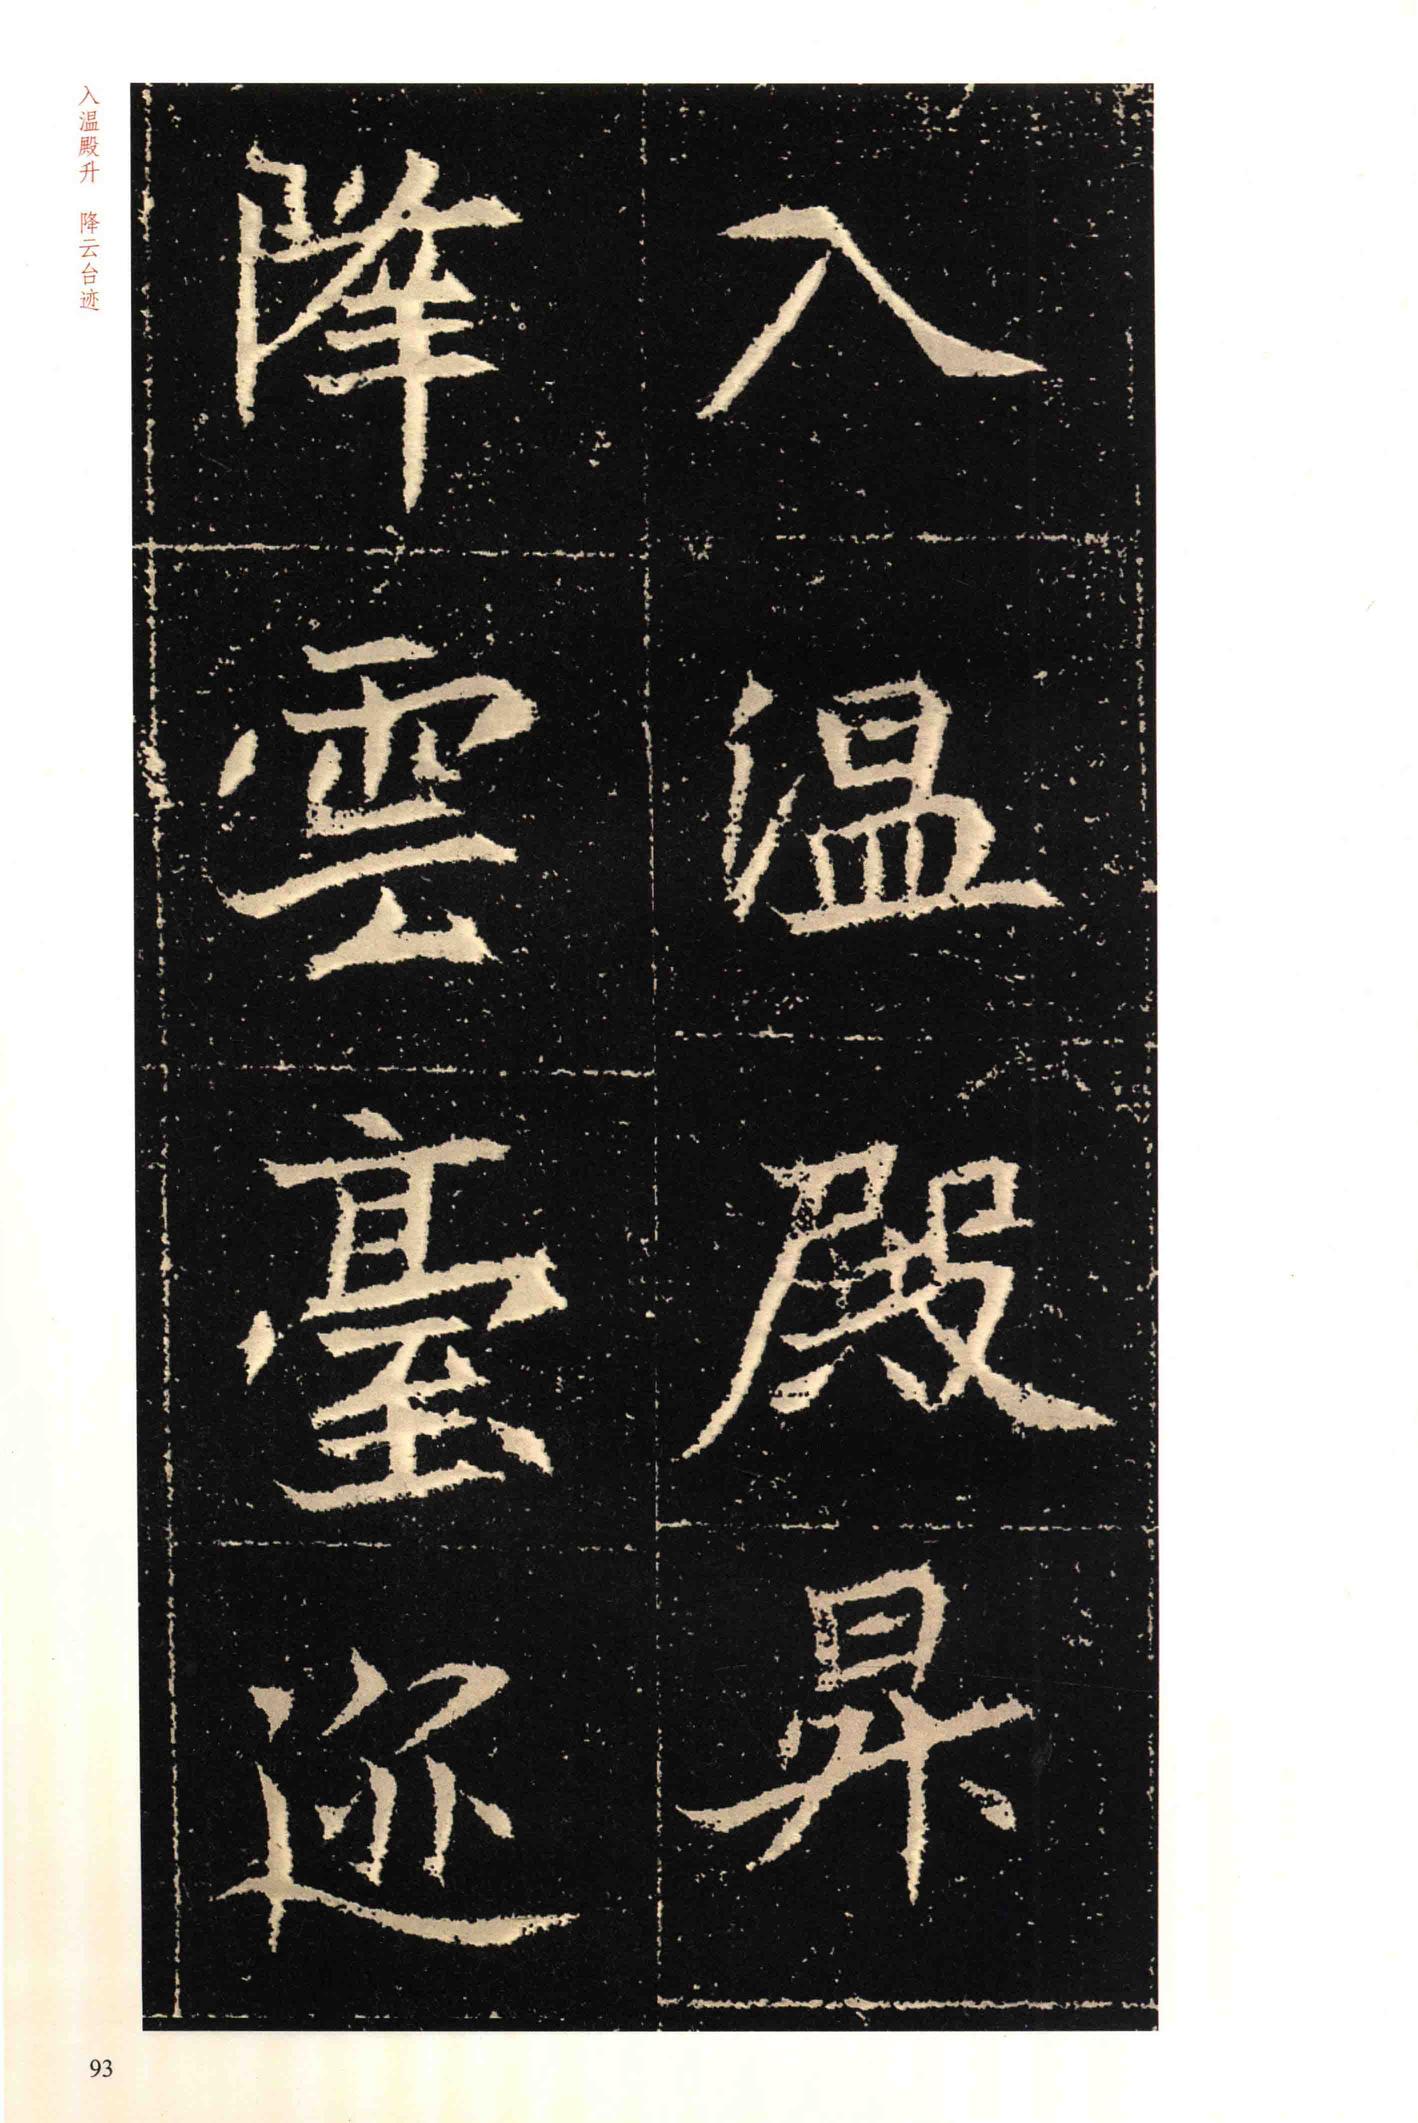 入温殿昇
降雲臺迹
入温殿升 降云台迹
93